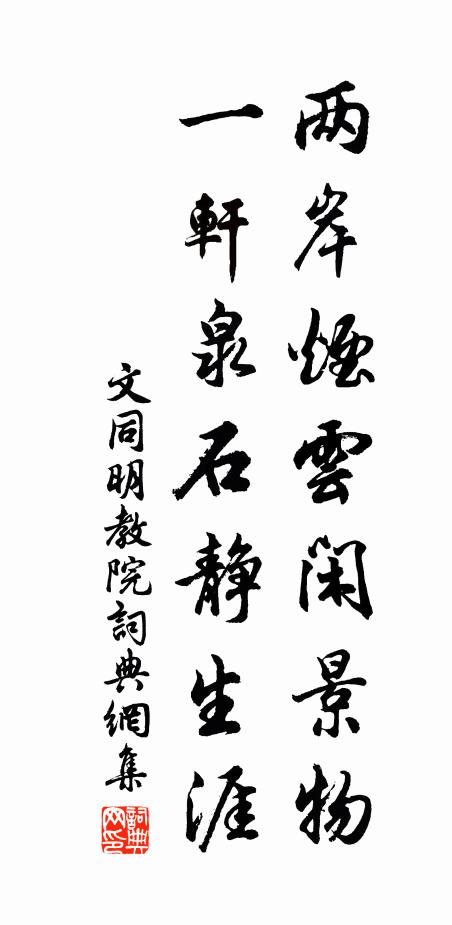 两岸煙雲閑景物
一軒泉石静生涯
文同明教院詞典網集
詞典
网印